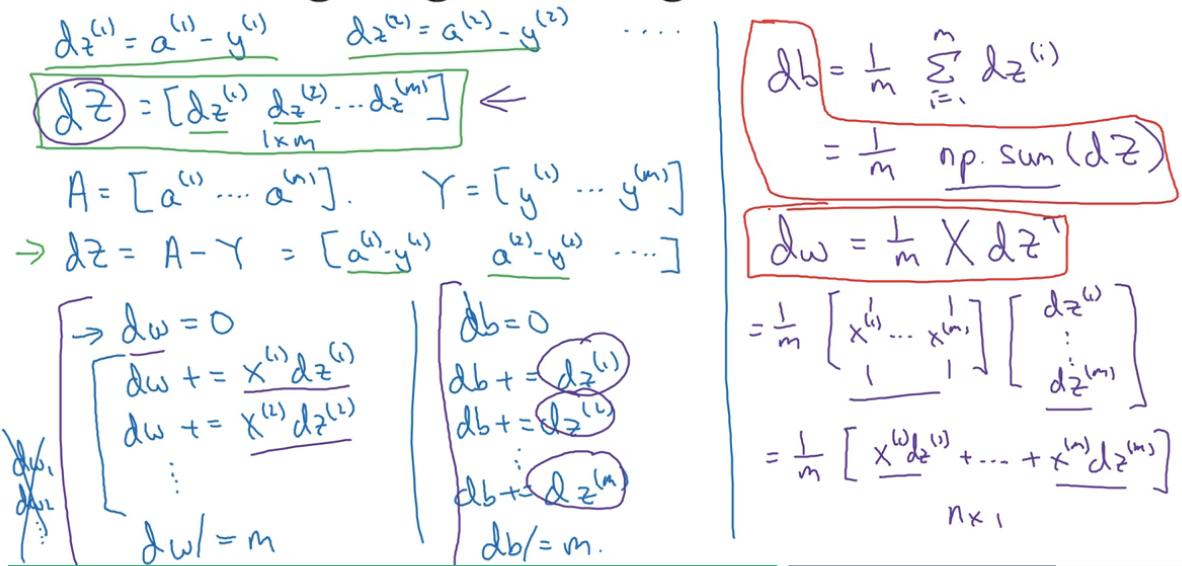 dz⁽¹⁾ = a⁽¹⁾ - y⁽¹⁾    dz⁽²⁾ = a⁽²⁾ - y⁽²⁾    ....
dZ = [dz⁽¹⁾ dz⁽²⁾ ... dz⁽ᵐ⁾] ←
1×m
A = [a⁽¹⁾ .... a⁽ᵐ⁾].    Y = [y⁽¹⁾ ... y⁽ᵐ⁾]
→ dZ = A - Y = [a⁽¹⁾-y⁽¹⁾    a⁽²⁾-y⁽²⁾    ....]
→ dw = 0
dw += x⁽¹⁾dz⁽¹⁾
dw += x⁽²⁾dz⁽²⁾
⋮
dw /= m
dw₁
dw₂
⋮
db = 0
db += dz⁽¹⁾
db += dz⁽²⁾
⋮
db += dz⁽ᵐ⁾
db /= m.
db = 1/m Σᵢ₌₁ᵐ dz⁽ⁱ⁾
= 1/m np.sum(dZ)
dw = 1/m X dZᵀ
= 1/m [x⁽¹⁾ ... x⁽ᵐ⁾] [dz⁽¹⁾ ⋮ dz⁽ᵐ⁾]
= 1/m [x⁽¹⁾dz⁽¹⁾ + .... + x⁽ᵐ⁾dz⁽ᵐ⁾]
n×1